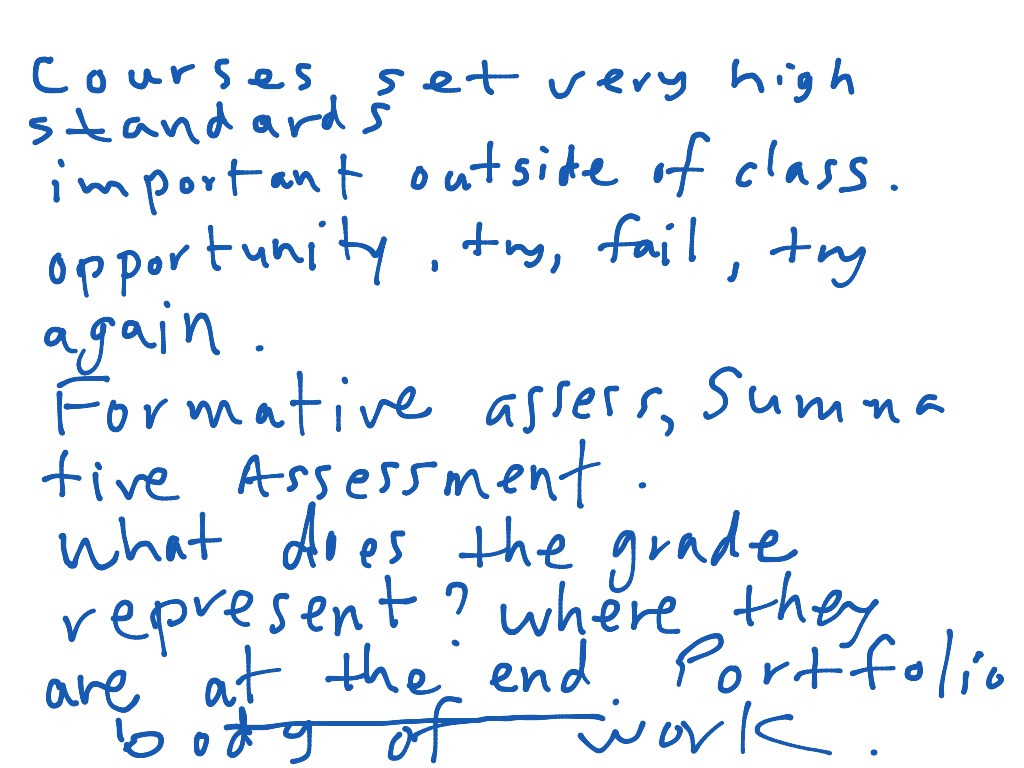 Courses set very high
standards
important outside of class.
opportunity. try, fail, try
again.
Formative assess, Summa
tive Assessment.
what does the grade
represent? where they
are at the end. Portfolio
body of work.